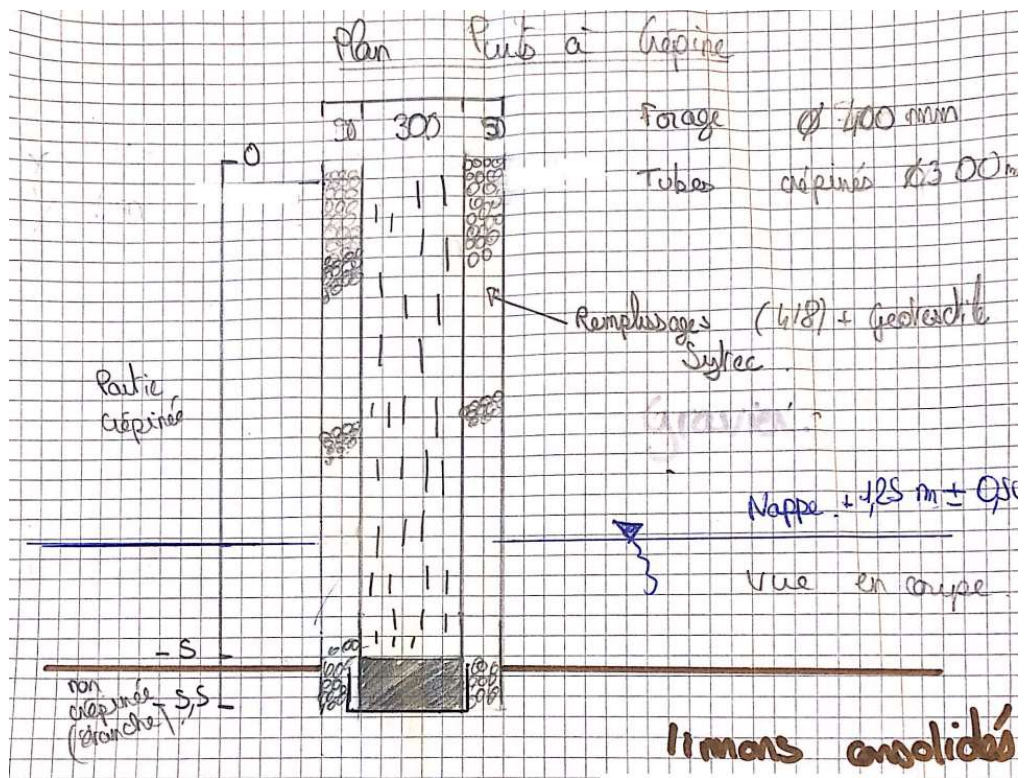 Plan Puits à Crépine
50 300 50
Forage Ø 400 mm
Tubes crépinés Ø 300 m
0
Remplissages (4/8) + Géotextile
Sytec.
Partie
Crépinée
Gravier.
Nappe + 1,25 m ± 0,50
Vue en coupe.
- 5
non
crépinée
(étanche)
- 5,5
limons consolidés